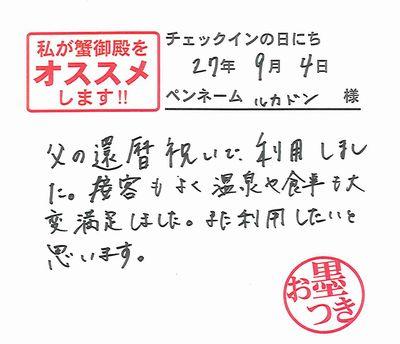 私が蟹御殿を
オススメ
します!!
チェックインの日にち
27年 9月 4日
ペンネーム ルカドン 様
父の還暦祝いで、利用しまし
た。接客もよく温泉や食事も大
変満足しました。また利用したいと
思います。
お墨つき